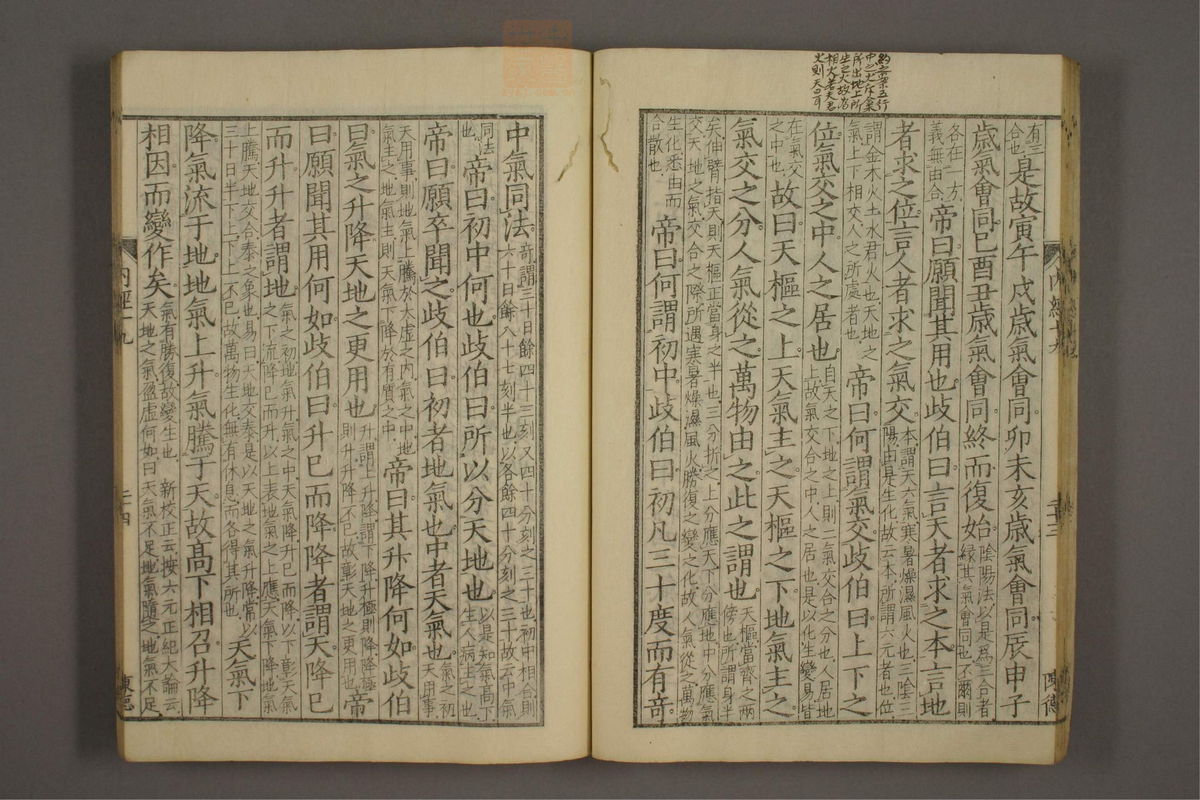 約之宗五行
有三
合也
是故寅午戌歲氣會同卯未亥歲氣會同辰申子
歲氣會同巳酉丑歲氣會同終而復始
陰陽法以是爲三合者
緣其氣會同也不爾則
各在一方
義無由合
帝曰願聞其用也歧伯曰言天者求之本言地
者求之位言人者求之氣交
本謂天六氣寒暑燥濕風火也三陰三
陽由是生化故云本所謂六元者也位
謂金木火土水君火也天地之
氣上下相交人之所處者也
帝曰何謂氣交歧伯曰上下之
位氣交之中人之居也
自天之下地之上則二氣交合之分也人居地
上故氣交合之中人之居也是以化生變易皆
在氣交
之中也
故曰天樞之上天氣主之天樞之下地氣主之
氣交之分人氣從之萬物由之此之謂也
天樞當齊之兩
傍也所謂身半
矣伸臂指天則天樞正當身之半也三分折之上分應天下分應地中分應氣
交天地之氣交合之際所遇寒暑燥濕風火勝復之變之化故人氣從之萬物
生化悉由而
合散也
帝曰何謂初中歧伯曰初凡三十度而有奇
內經十九
二十三
中氣同法
奇謂三十日餘四十三刻又四十分刻之三十也初中相合則
六十日餘八十七刻半也以各餘四十分刻之三十故云中氣
同法
也
帝曰初中何也歧伯曰所以分天地也
以是知氣高下
生人病主之也
帝曰願卒聞之歧伯曰初者地氣也中者天氣也
氣之初
天用事
天用事則地氣上騰於太虛之內氣之中地
氣主之地氣主則天氣下降於有質之中
帝曰其升降何如歧伯
曰氣之升降天地之更用也
升謂上升降謂下降升極則降降極
則升升降不已故彰天地之更用也
帝
曰願聞其用何如歧伯曰升已而降降者謂天降已
而升升者謂地
氣之初地氣升氣之中天氣降升已而降以下彰天氣
之下流降已而升以上表地氣之上應天氣下降地氣
上騰天地交合泰之象也易曰天地交泰是以天地之氣升降常以
三十日半下上下上不已故萬物生化無有休息而各得其所也
天氣下
降氣流于地地氣上升氣騰于天故高下相召升降
相因而變作矣
氣有勝復故變生也 新校正云按六元正紀大論云
天地之氣盈虛何如曰天氣不足地氣隨之地氣不足
內經十九
二十四